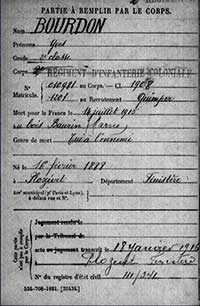 PARTIE À REMPLIR PAR LE CORPS.
Nom BOURDON
Prénoms Yves
Grade 2e classe
Corps 2e RÉGIMENT D'INFANTERIE COLONIALE
N° au Corps. — Cl. 1908
Matricule. au Recrutement Quimper
Mort pour la France le 14 juillet 1915
au bois Baurin (Marne)
Genre de mort Tué à l'ennemi
Né le 16 février 1888
à Plozévet Département Finistère
Arr' municipal (p' Paris et Lyon),
à défaut rue et N°.
Cette partie n'est pas à remplir par le Corps.
Jugement rendu le
par le Tribunal de
acte ou jugement transcrit le 18 Janvier 1916
à Plozévet Finistère
N° du registre d'état civil
534-708-1921. [26434.]